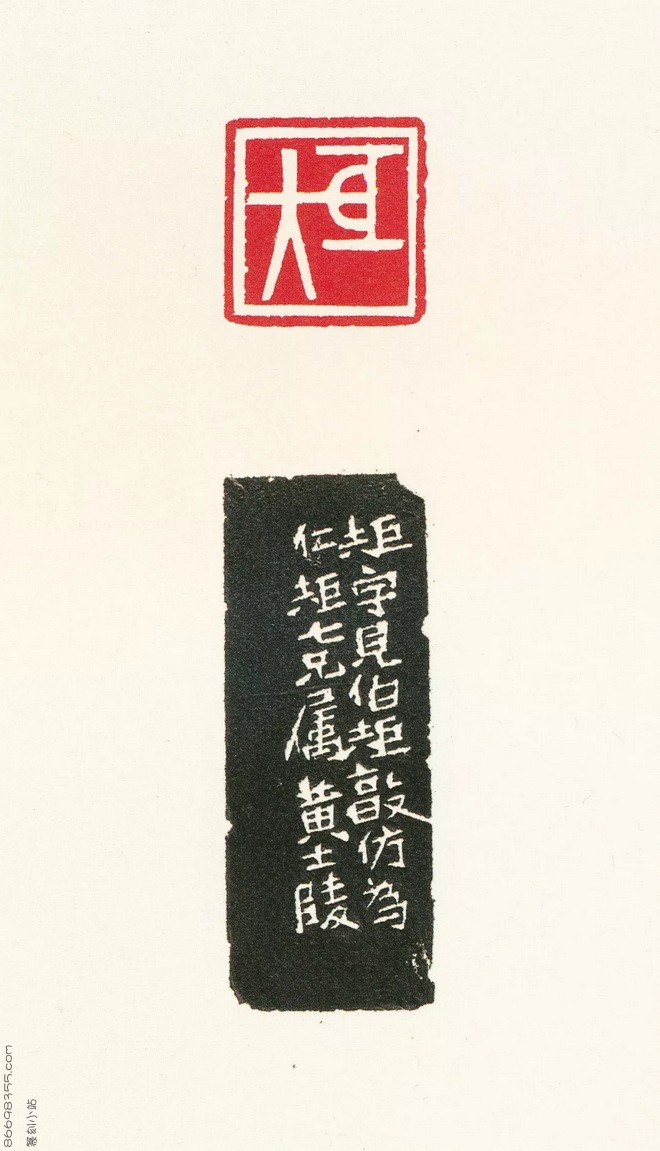 矩
矩字見伯矩敦仿為
仁矩七兄属黄士陵
86698355.com
篆刻小站